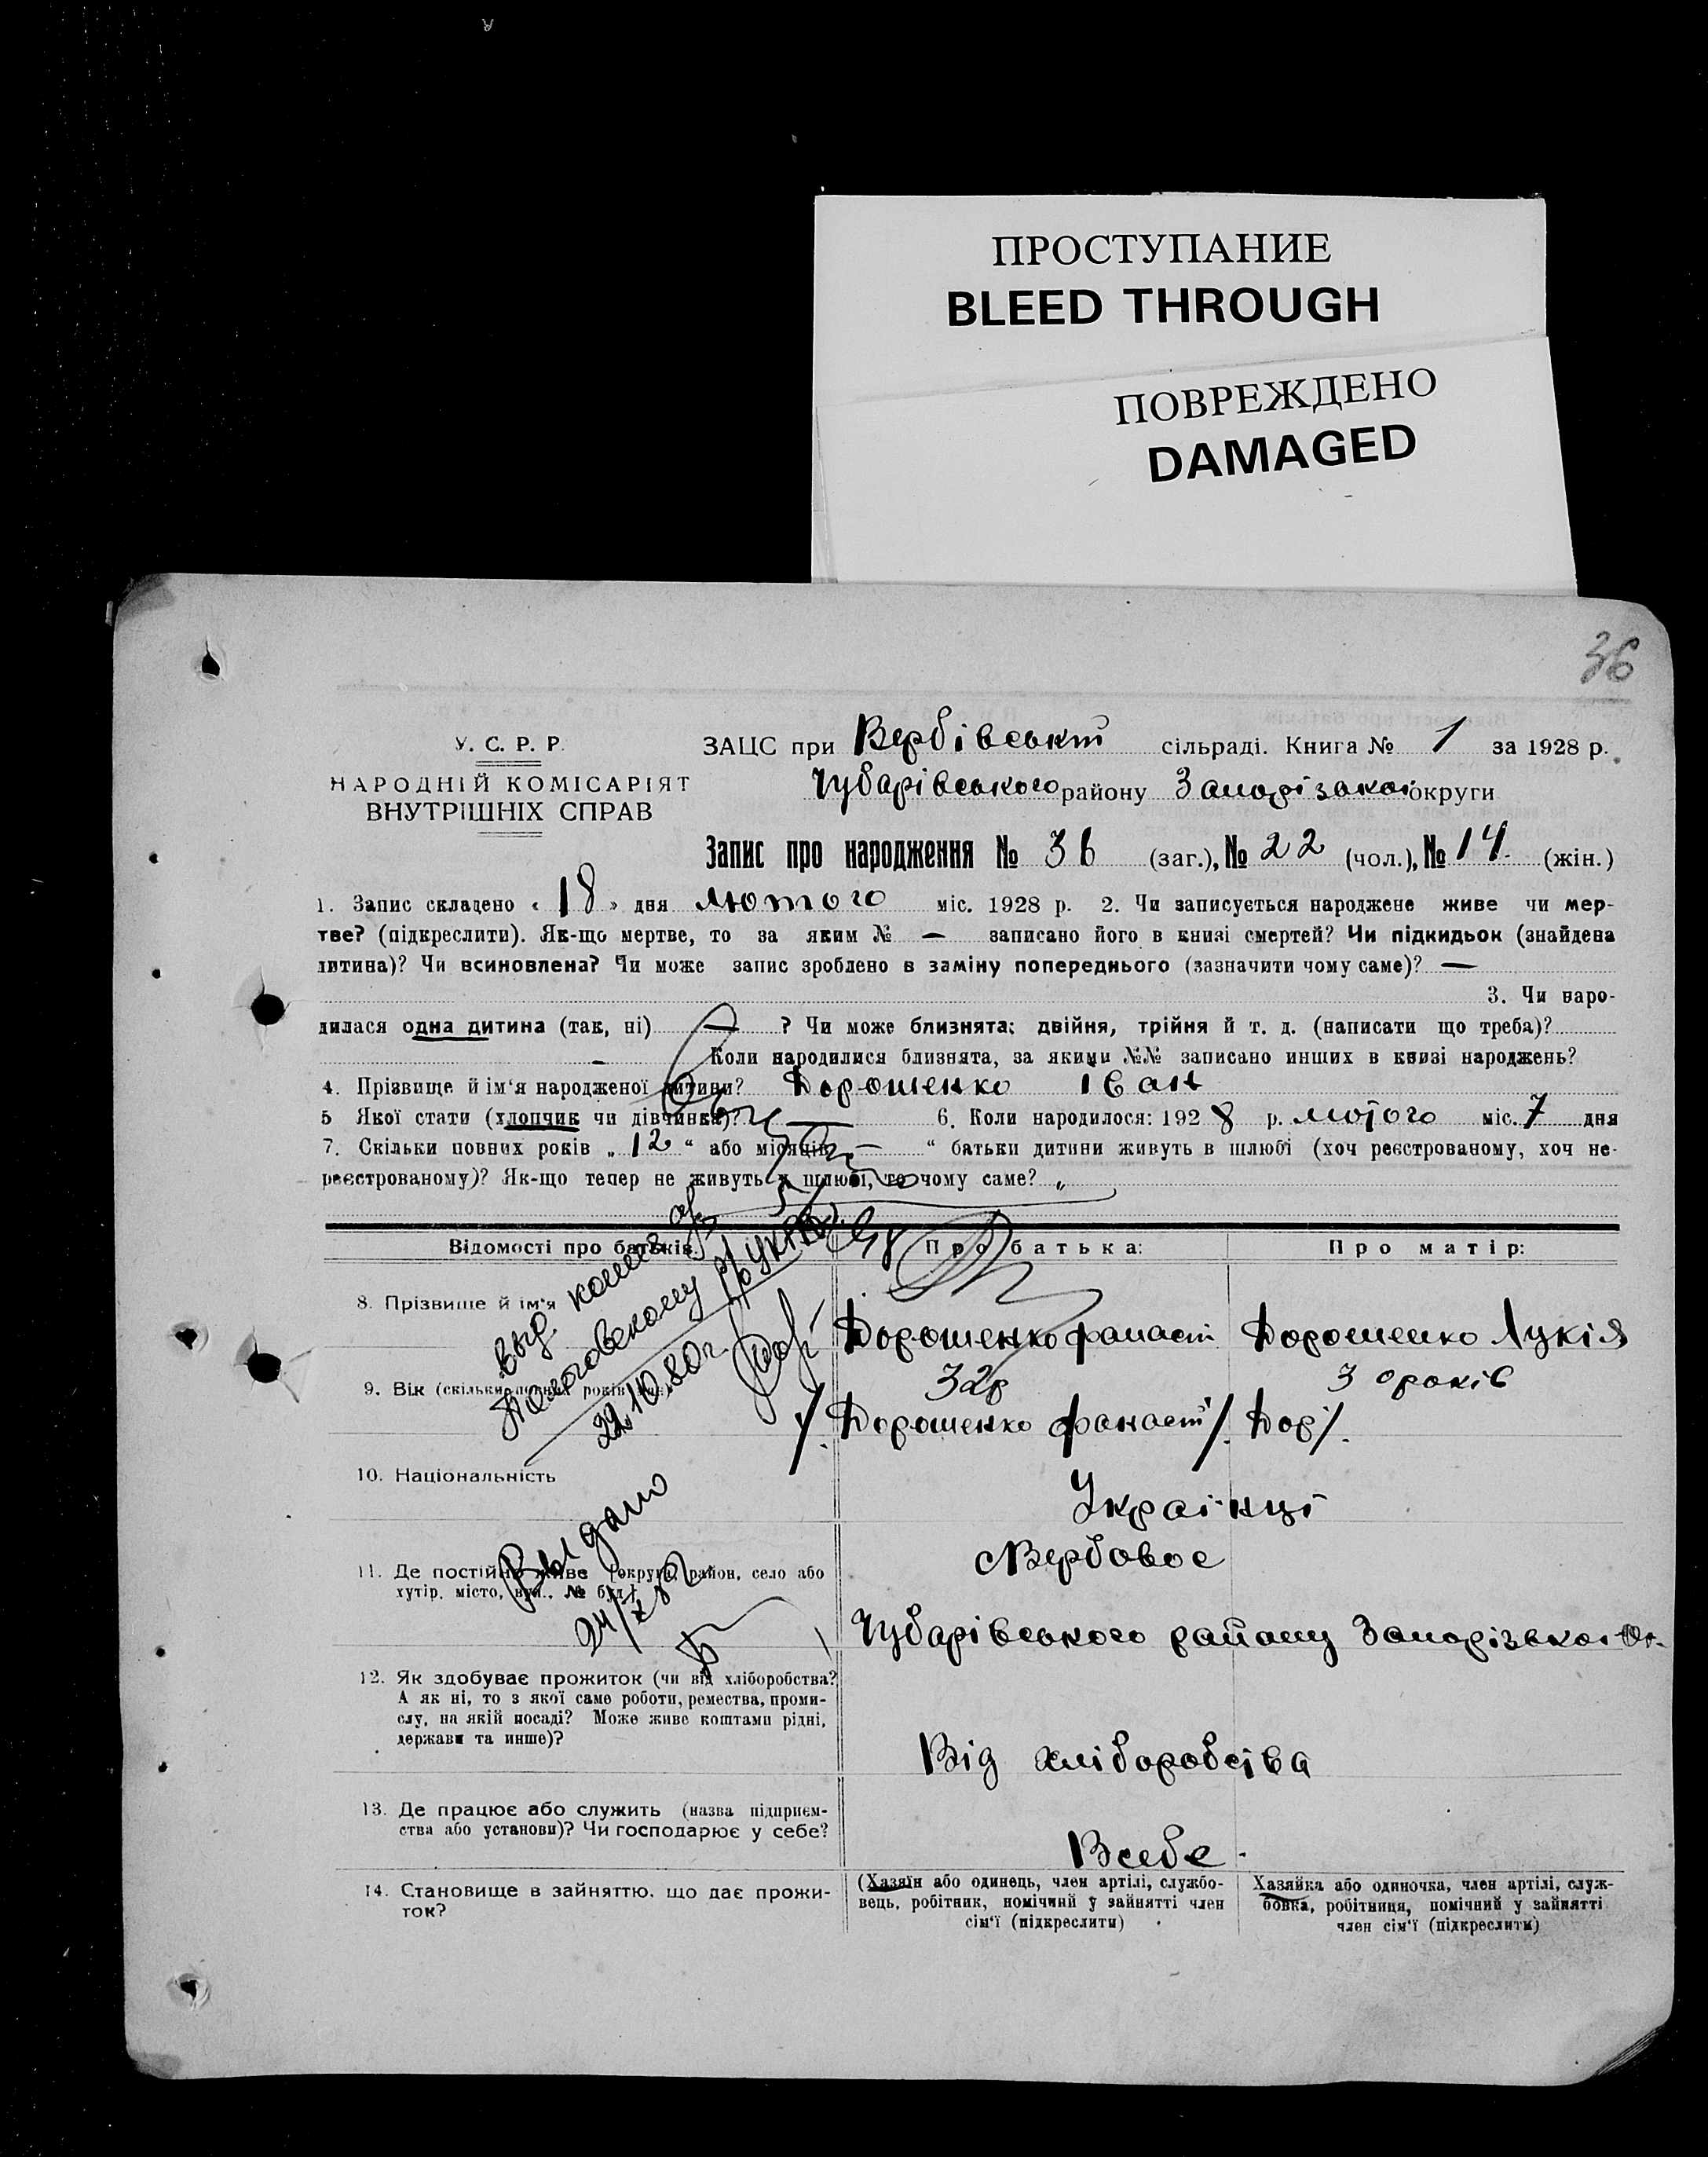 ПРОСТУПАНИЕ
BLEED THROUGH
ПОВРЕЖДЕНО
DAMAGED
36
У. С. Р. Р.
НАРОДНІЙ КОМІСАРІЯТ
ВНУТРІШНІХ СПРАВ
ЗАЦС при Вербівській сільраді. Книга № 1 за 1928 р.
Чубарівського району Запорізької округи
Запис про народження № 36 (заг.), № 22 (чол.), № 14 (жін.)
1. Запис складено « 18 » дня лютого міс. 1928 р. 2. Чи записується народжене живе чи мер-
тве? (підкреслити). Як-що мертве, то за яким № — записано його в книзі смертей? Чи підкидьок (знайдена
дитина)? Чи всиновлена? Чи може запис зроблено в заміну попереднього (зазначити чому саме)? —
3. Чи наро-
дилася одна дитина (так, ні) — ? Чи може близнята: двійня, трійня й т. д. (написати що треба)?
– Коли народилися близнята, за якими №№ записано инших в книзі народжень?
4. Прізвище й ім'я народженої дитини? Дорошенко Іван
5 Якої стати (хлопчик чи дівчинка)? 6. Коли народилося: 1928 р. лютого міс. 7 дня
7. Скільки повних років „ 12 “ або місяців — “ батьки дитини живуть в шлюбі (хоч реєстрованому, хоч не-
реєстрованому)? Як-що тепер не живуть у шлюбі, то чому саме? „
Відомості про батьків. Про батька: Про матір:
8. Прізвище й ім'я
Дорошенко Фанаст Дорошенко Лукія
9. Вік (скільки повних років має) 32р 30 років
/. Дорошенко Фанаст /. Дор/.
выд. копия
Пологовскому
22.10.80г.
10. Національність Українці
Выдано
11. Де постійно живе (округа, район, село або
хутір, місто, вул., № буд.)
с Вербовое
Чубарівського району Запорізької Ок.
12. Як здобуває прожиток (чи від хліборобства?
А як ні, то з якої саме роботи, ремества, проми-
слу, на якій посаді? Може живе коштами рідні,
держави та инше)?
Від хліборобства
13. Де працює або служить (назва підприєм-
ства або установи)? Чи господарює у себе?
Всебе.
14. Становище в зайняттю, що дає прожи-
ток?
(Хазяїн або одинець, член артілі, службо-
вець, робітник, помічний у зайнятті член
сім'ї (підкреслити)
Хазяйка або одиночка, член артілі, служ-
бовка, робітниця, помічний у зайнятті
член сім'ї (підкреслити)